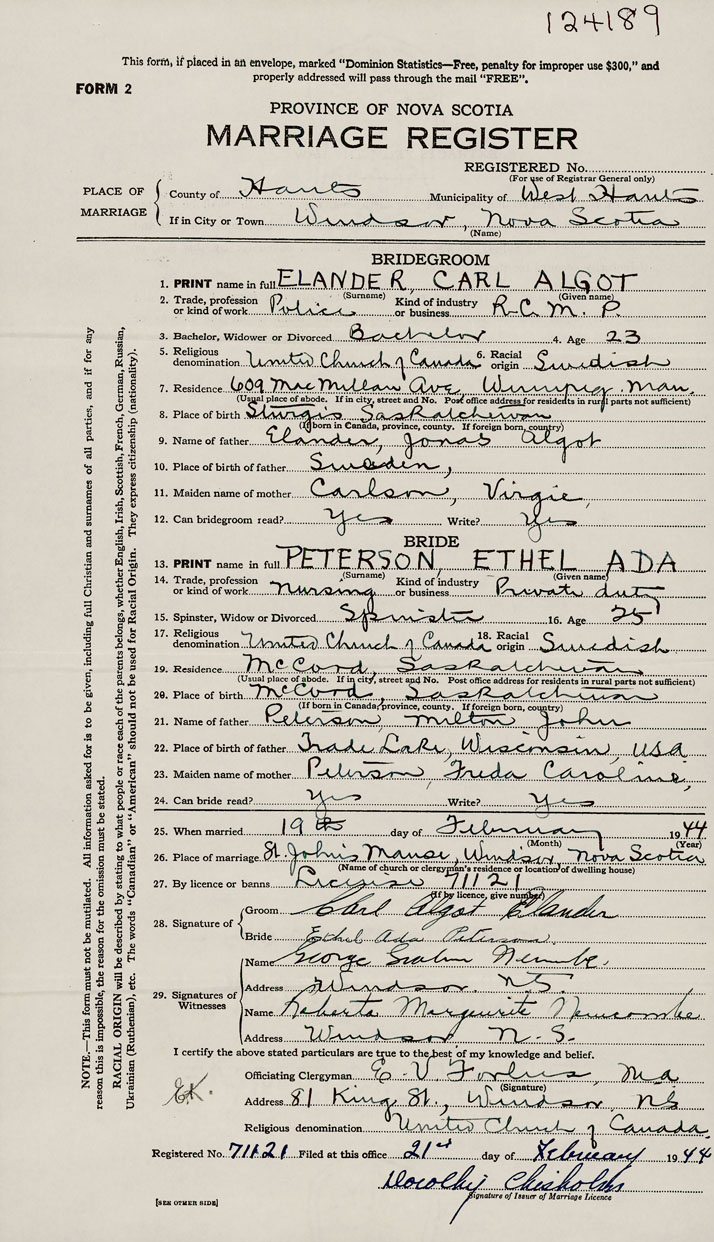 124189
This form, if placed in an envelope, marked "Dominion Statistics—Free, penalty for improper use $300," and
properly addressed will pass through the mail "FREE".
FORM 2
PROVINCE OF NOVA SCOTIA
MARRIAGE REGISTER
REGISTERED No.
(For use of Registrar General only)
PLACE OF MARRIAGE
County of Hants Municipality of West Hants
If in City or Town Windsor, Nova Scotia
(Name)
BRIDEGROOM
1. PRINT name in full ELANDER, CARL ALGOT
(Surname) (Given name)
2. Trade, profession or kind of work Police Kind of industry or business R.C.M.P.
3. Bachelor, Widower or Divorced Bachelor 4. Age 23
5. Religious denomination United Church of Canada 6. Racial origin Swedish
7. Residence 609 MacMillan Ave, Winnipeg Man.
(Usual place of abode. If in city, street and No. Post office address for residents in rural parts not sufficient)
8. Place of birth Sturgis Saskatchewan
(If born in Canada, province, county. If foreign born, country)
9. Name of father Elander, Jonas Algot
10. Place of birth of father Sweden,
11. Maiden name of mother Carlson, Virgie,
12. Can bridegroom read? Yes Write? Yes
BRIDE
13. PRINT name in full PETERSON, ETHEL ADA
(Surname) (Given name)
14. Trade, profession or kind of work Nursing Kind of industry or business Private duty
15. Spinster, Widow or Divorced Spinster 16. Age 25
17. Religious denomination United Church of Canada 18. Racial origin Swedish
19. Residence McCord, Saskatchewan
(Usual place of abode. If in city, street and No. Post office address for residents in rural parts not sufficient)
20. Place of birth McCord, Saskatchewan
(If born in Canada, province, county. If foreign born, country)
21. Name of father Peterson, Milton John
22. Place of birth of father Trade Lake, Wisconsin, USA
23. Maiden name of mother Peterson, Freda Caroline,
24. Can bride read? Yes Write? Yes
25. When married 19th day of February 1944
(Month) (Year)
26. Place of marriage St. John's Manse, Windsor, Nova Scotia
(Name of church or clergyman's residence or location of dwelling house)
27. By licence or banns License 71121
(If by licence, give number)
28. Signature of
Groom Carl Algot Elander
Bride Ethel Ada Peterson.
29. Signatures of Witnesses
Name George
Address Windsor N.S.
Name Roberta Marguerite Newcombe
Address Windsor N.S.
I certify the above stated particulars are true to the best of my knowledge and belief.
Officiating Clergyman E. V. Forbes, M.A.
(Signature)
E.K.
Address 81 King St., Windsor, NS
Religious denomination United Church of Canada.
Registered No. 71121 Filed at this office 21st day of February 1944
Dorothy Chisholm
Signature of Issuer of Marriage Licence
[SEE OTHER SIDE]
NOTE.—This form must not be mutilated. All information asked for is to be given, including full Christian and surnames of all parties, and if for any
reason this is impossible, the reason for the omission must be stated.
RACIAL ORIGIN will be described by stating to what people or race each of the parents belongs, whether English, Irish, Scottish, French, German, Russian,
Ukrainian (Ruthenian), etc. The words "Canadian" or "American" should not be used for Racial Origin. They express citizenship (nationality).